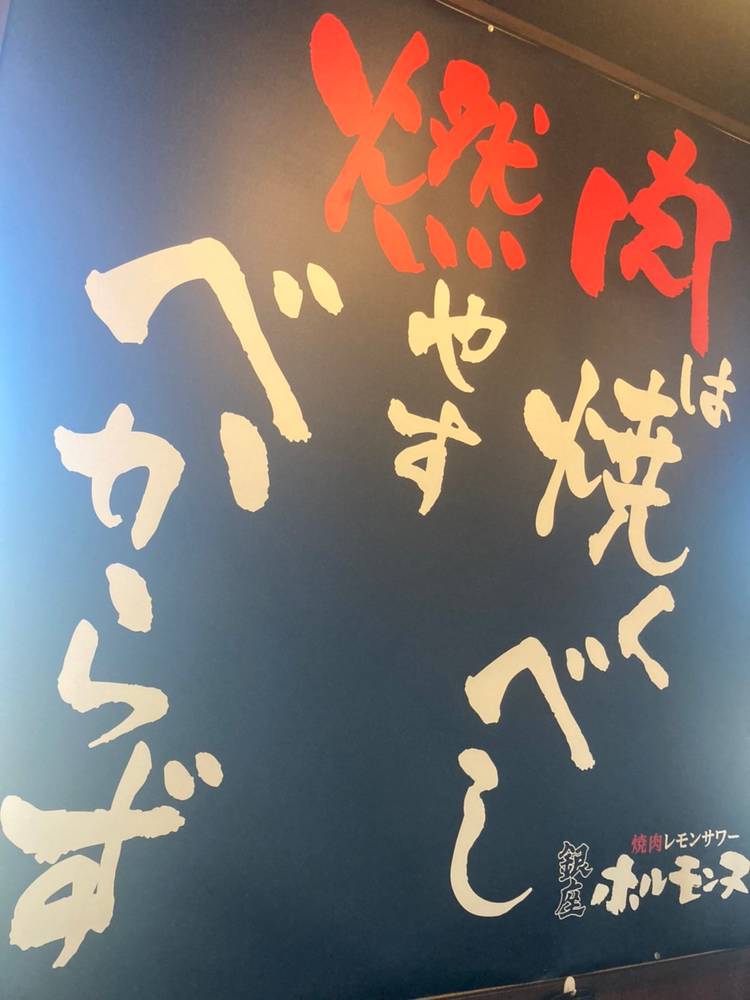 肉は焼くべし
燃やす
べからず
焼肉レモンサワー
銀座
ホルモンス